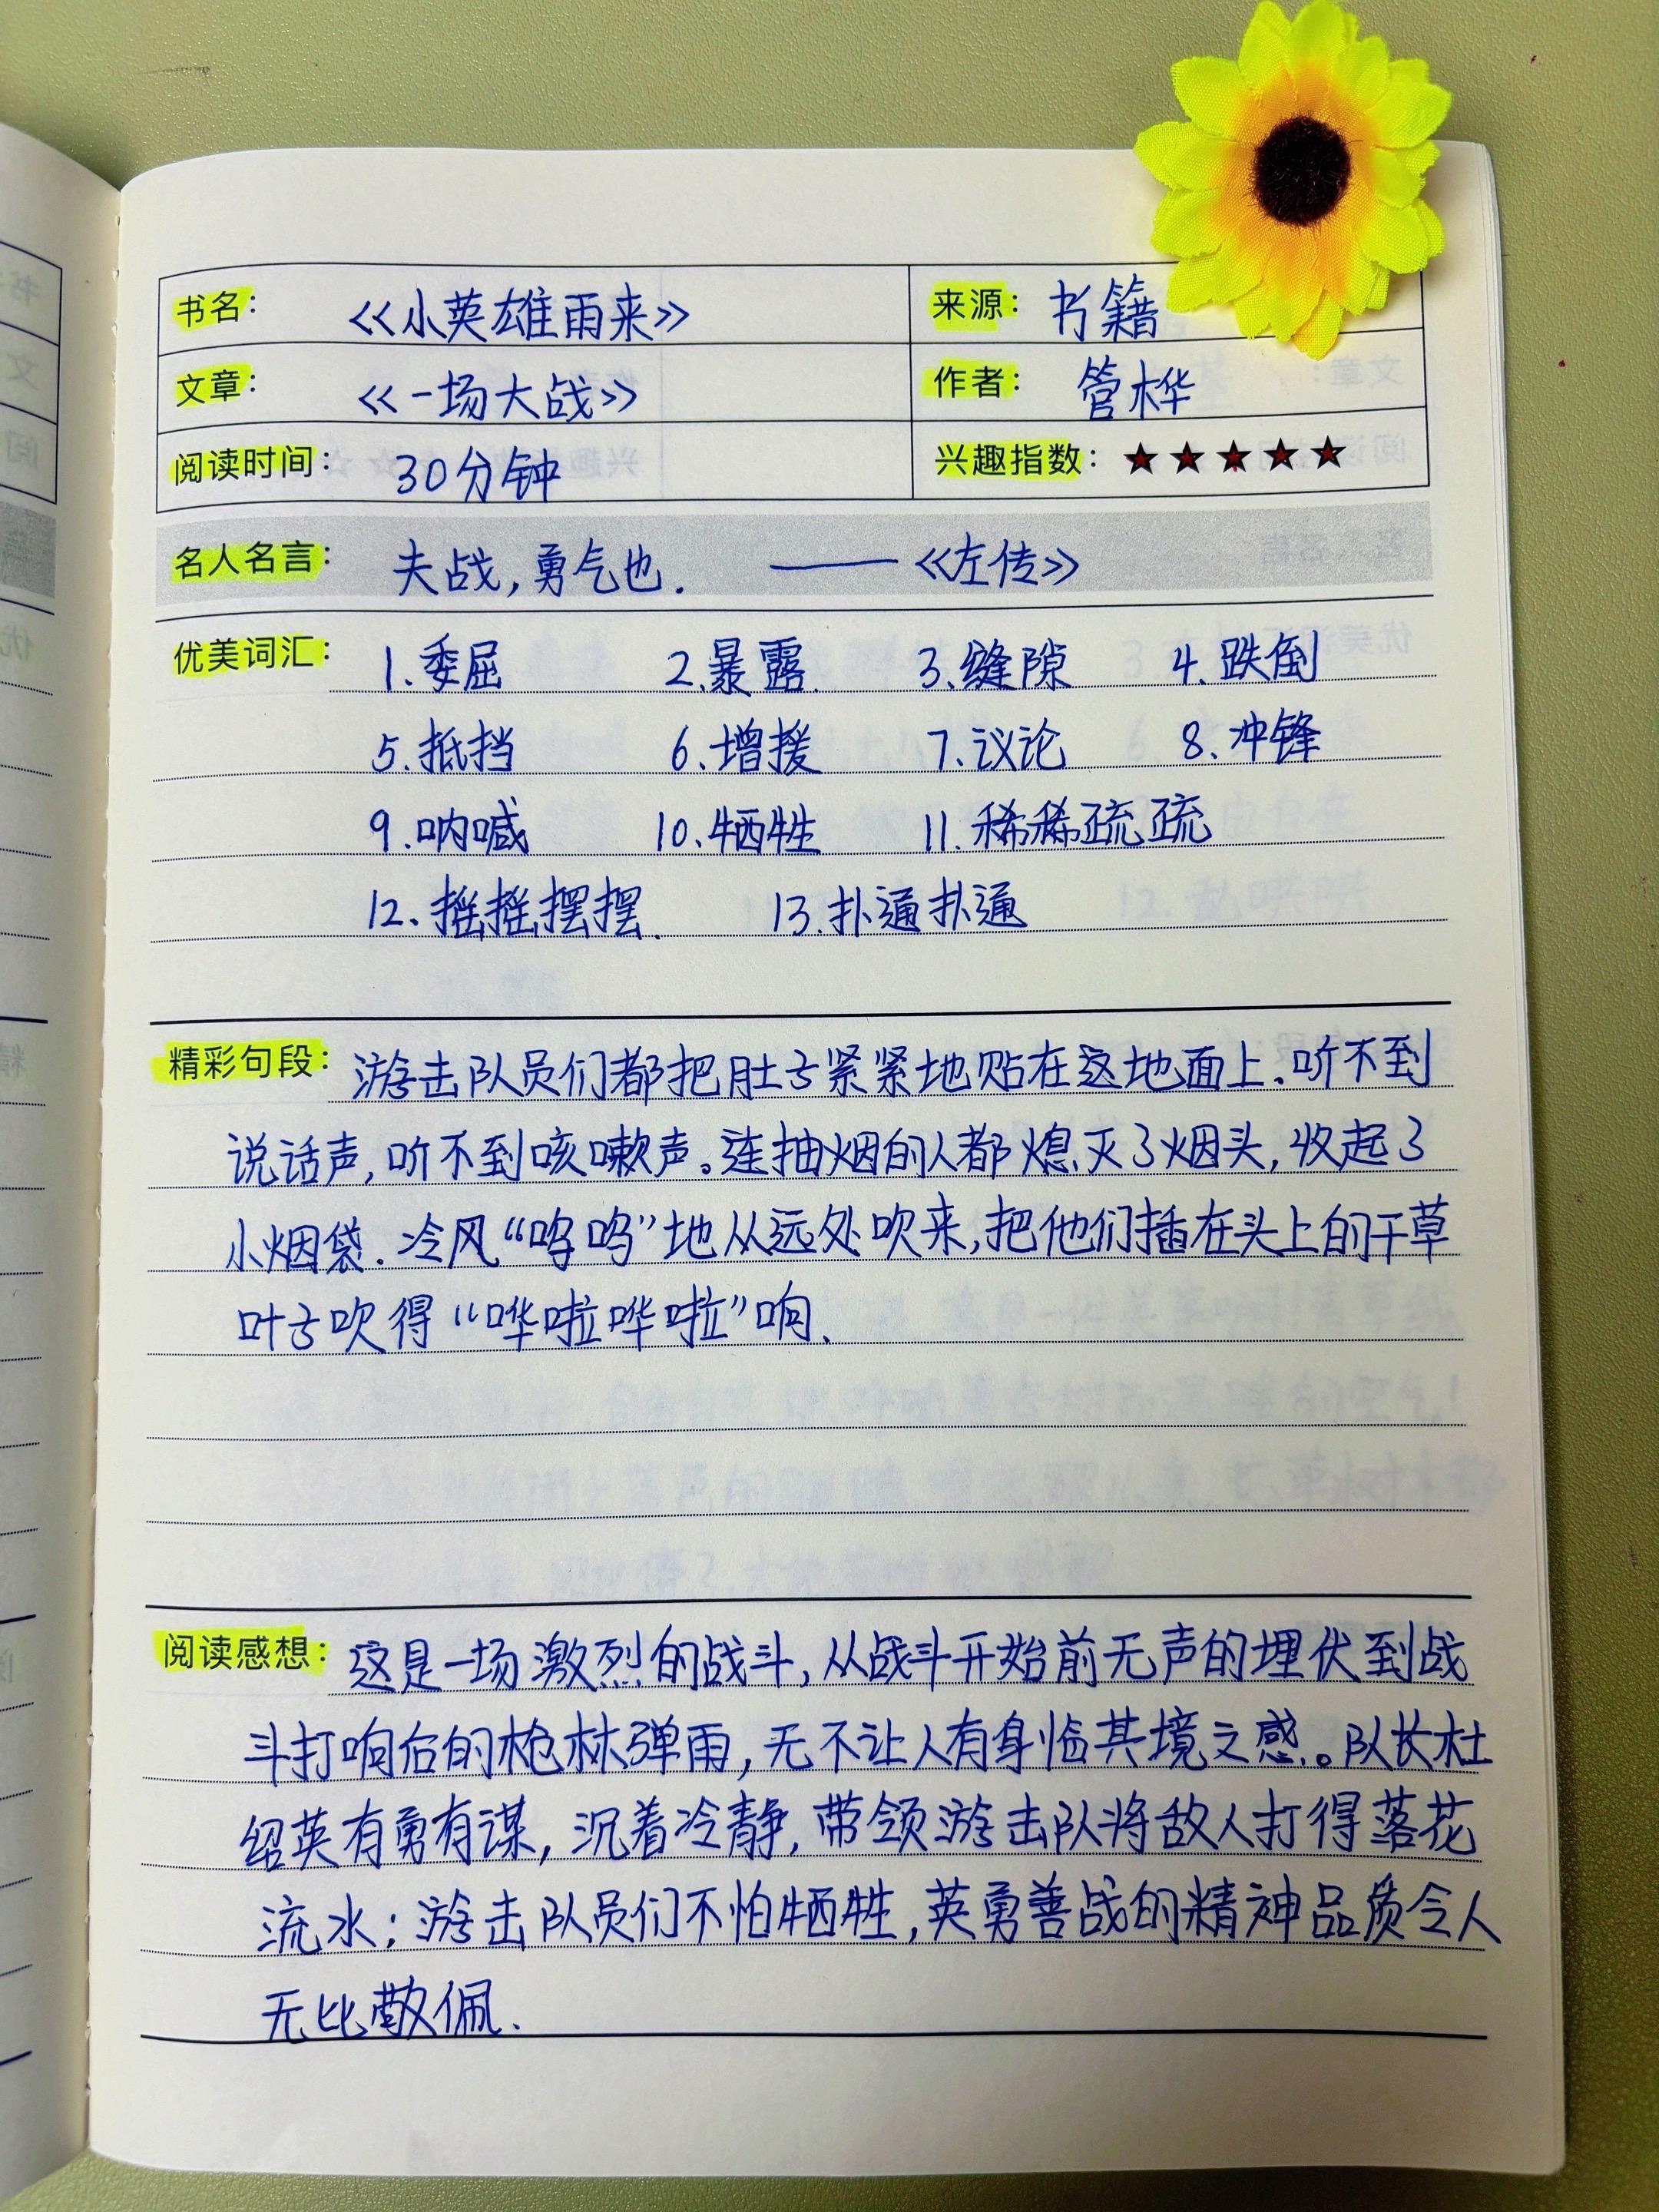 书名： 《小英雄雨来》 来源： 书籍
文章： 《一场大战》 作者： 管桦
阅读时间： 30分钟 兴趣指数： ★★★★★
名人名言： 夫战,勇气也. ——《左传》
优美词汇： 1.委屈 2.暴露. 3.缝隙 4.跌倒
5.抵挡 6.增援 7.议论 8.冲锋
9.呐喊 10.牺牲 11.稀稀疏疏
12.摇摇摆摆. 13.扑通扑通
精彩句段： 游击队员们都把肚子紧紧地贴在这地面上.听不到
说话声,听不到咳嗽声。连抽烟的人都熄灭了烟头,收起了
小烟袋.冷风“呜呜”地从远处吹来,把他们插在头上的干草
叶子吹得“哗啦哗啦”响.
阅读感想： 这是一场激烈的战斗,从战斗开始前无声的埋伏到战
斗打响后的枪林弹雨,无不让人有身临其境之感。队长杜
绍英有勇有谋,沉着冷静,带领游击队将敌人打得落花
流水;游击队员们不怕牺牲,英勇善战的精神品质令人
无比敬佩.